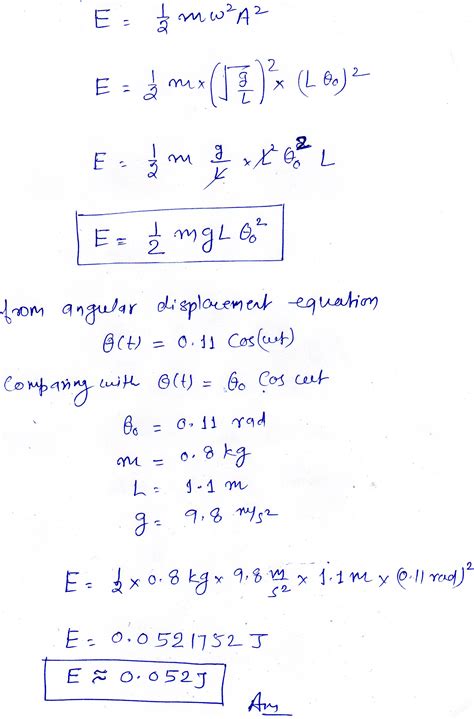 E = 1/2 mω²A²
E = 1/2 m × (√(g/L))² × (Lθ₀)²
E = 1/2 m g/L × L² θ₀² L
E = 1/2 mgL θ₀²
from angular displacement equation
θ(t) = 0.11 Cos(ωt)
Comparing with θ(t) = θ₀ Cos ωt
θ₀ = 0.11 rad
m = 0.8 kg
L = 1.1 m
g = 9.8 m/s²
E = 1/2 × 0.8 kg × 9.8 m/s² × 1.1 m × (0.11 rad)²
E = 0.0521752 J
E ≈ 0.052J
Ans